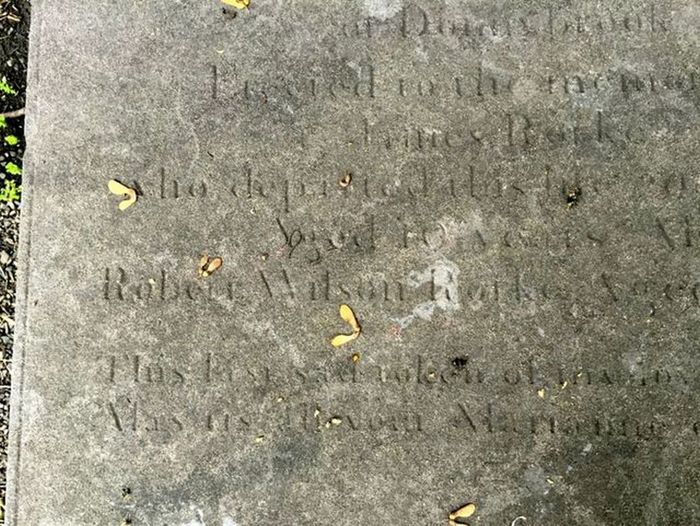 at Donnybrook
Erected to the memo
James Rorke
who departed this life 20
Aged 10 years
Robert Wilson Rorke, Aged
This last sad token of
Alas tis all your Marianne